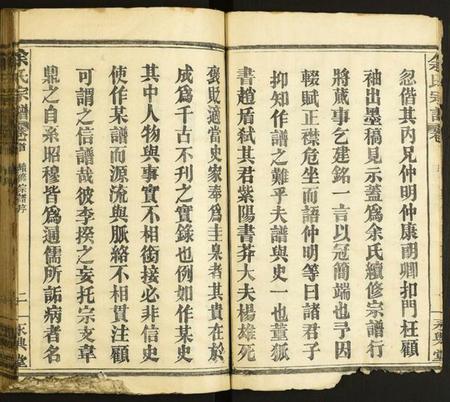 忽偕其内兄仲明仲康兩卿扣門枉顧
袖出墨稿見示蓋為余氏續修宗譜行
將蕆事乞建銘一言以冠簡端也予因
輟賦正襟危坐而語仲明等曰諸君子
抑知作譜之難乎夫譜與史一也董狐
書趙盾弑其君紫陽書莽大夫楊雄死
褒貶適當史家奉為圭臬者其貴在於
成為千古不刋之實錄也例如作某史
其中人物與事實不相銜接必非信史
使作某譜而源流與脈絡不相貫注顧
可謂之信譜哉彼李揆之妄托宗支韋
鼎之自系昭穆皆為通儒所詬病者名
余氏宗譜
卷首
續修宗譜序
永興堂